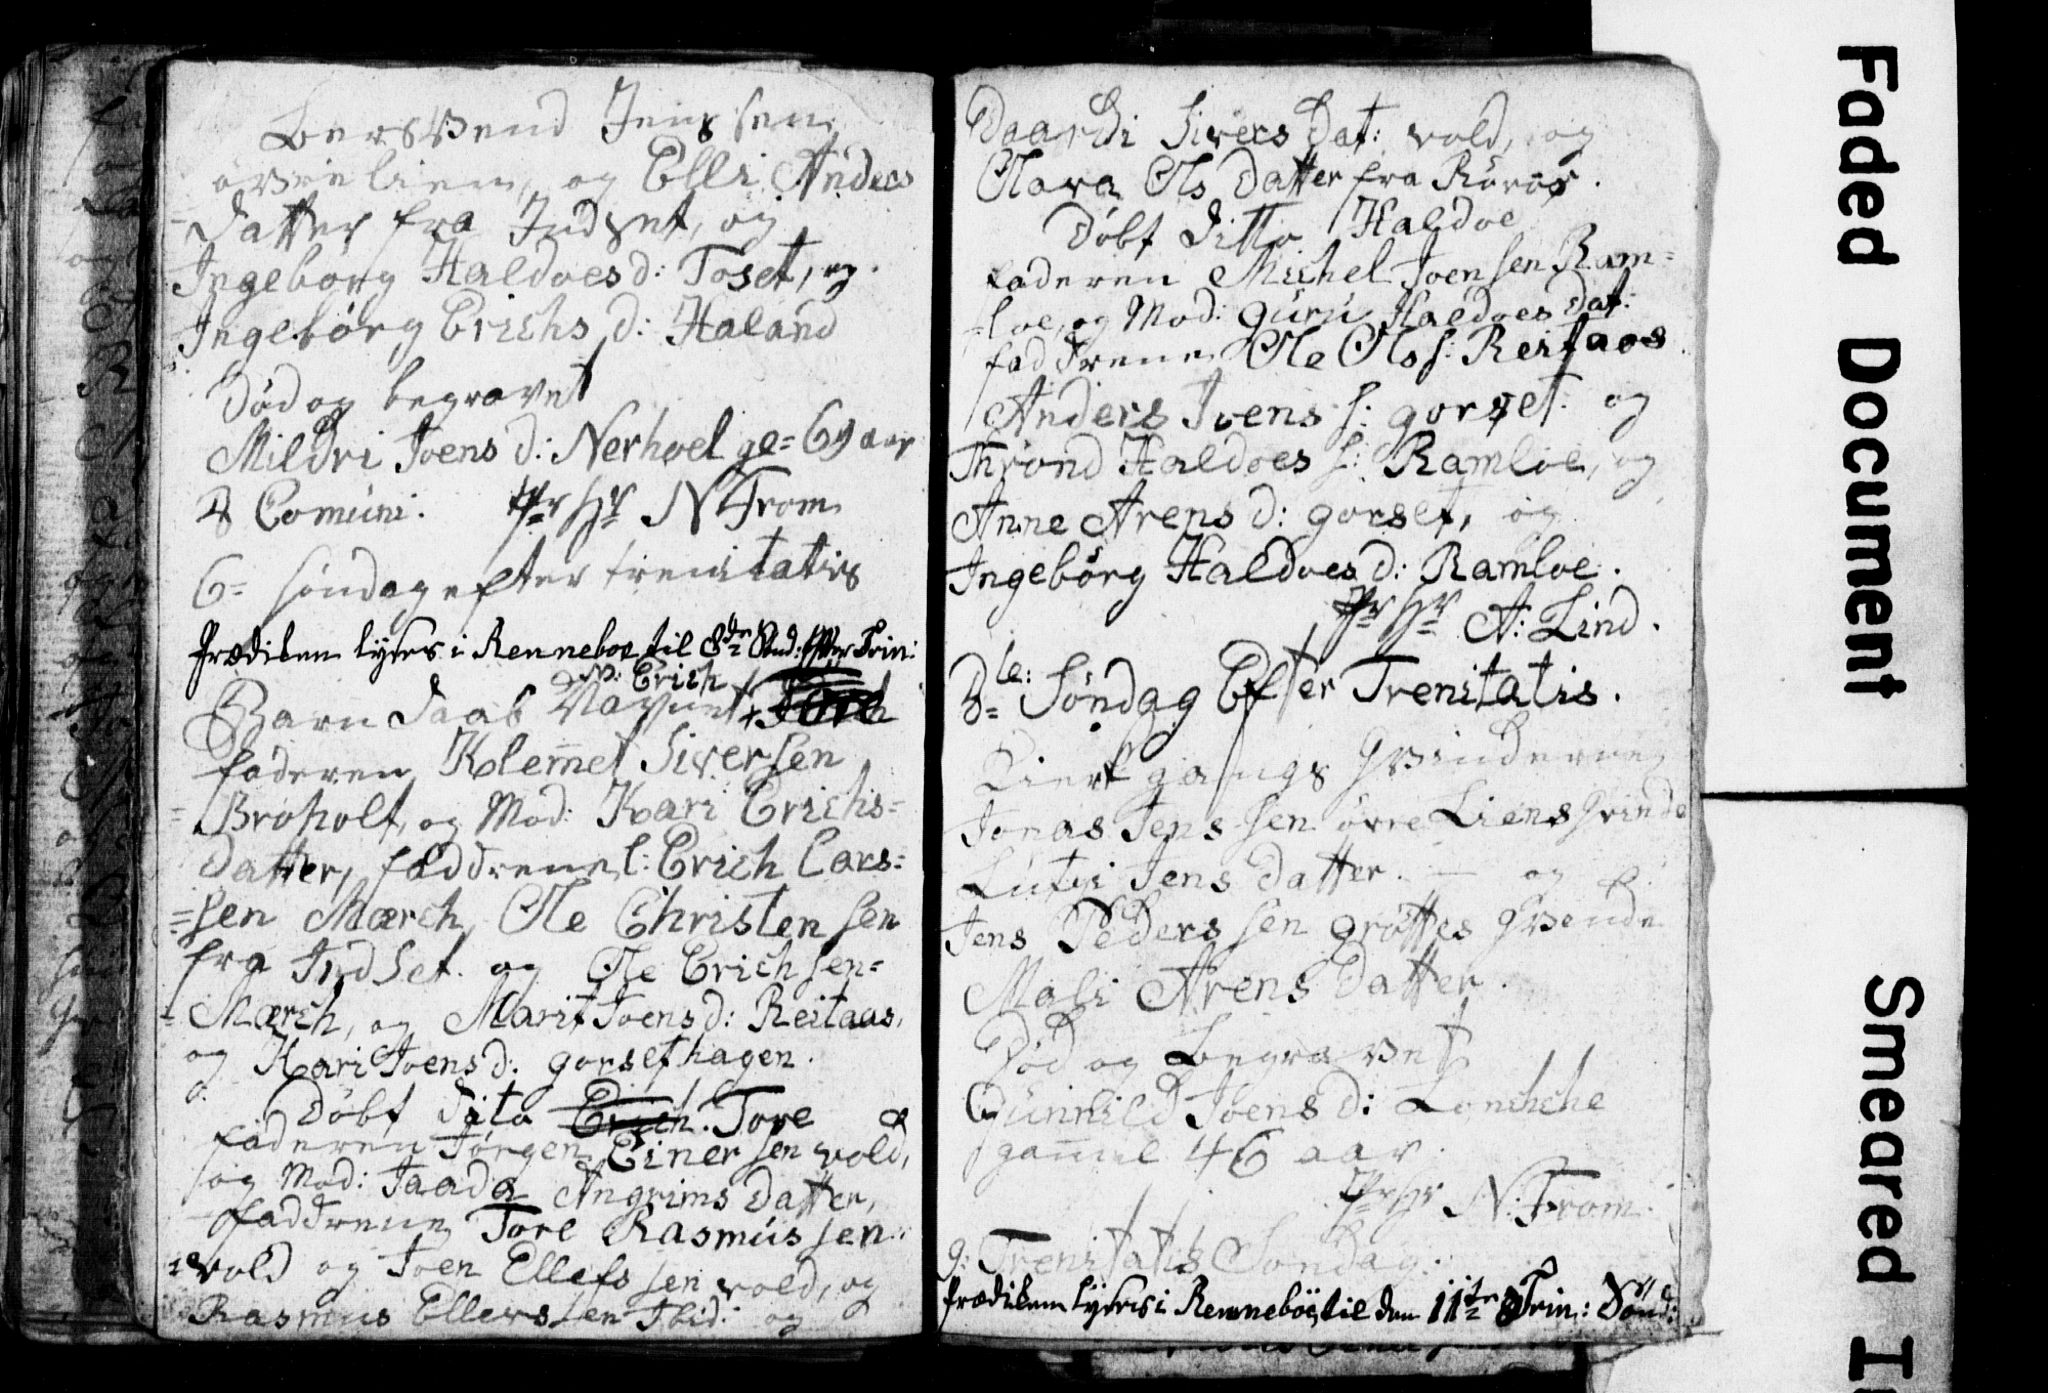 Bersvend Jenssen
øvre Liem, og Elli Anders
datter fra Indset, og
Ingebørg Haldoesd: Toset, og
Ingebørg Erichs d: Haland
Død og begravet
Mildri Joens d: Nerhoel ge= 69 aar
Comuni: Pr Hr N Trom
6= søndag efter trenitatis
Prædiken lyses i Renneboe til 8de Sønd: efter Trin:
N: Erich
Barn daab Navnet
faderen Klem̅et Siversen
Broholt, og Mod: Kari Erichs=
datter, faddrene l: Erich Lars=
=sen Mærch, Ole Christensen
fra Indset og Ole Erichsen=
Mærch, og Marit Joens d: Reitaas,
og Kari Joens d: gorsethagen.
Døbt dito Erich. Tore
faderen Jørgen Einersen vold,
og Mod: Jaada Angrims datter,
faddrene Tore Rasmus sen
vold og Joen Ellefs sen vold, og
Rasmus Ellevs sen Ibid: og
Daardi Sivers Dat: vold, og
Olava Ols Datter fra Røros.
Døbt ditto Haldoe
faderen Michel Joensen Ram=
=loe, og Mod: guru Haldoes Dat:
faddrene Ole Ols s: Reitaas
Anders Joens s: gorset og
Thrond Haldoes s: Ramloe, og
Anne Arens d: gorset, og
Ingebørg Haldoes d: Ramloe.
Pr Hr A: Lind.
8= de: Søndag Efter Trenitatis.
Kierkgangs Qvinderne
Jonas Jens sen øvre Liens Qvinde
Jens datter. — og
Jens Peders sen grøttes Qvende
Mali Arens Datter.
Død og Begravet
Gunnild Joens d: Lonchche
gam̅el 46 aar.
Pr Hr N: Trom.
9: Trenitatis Søndag.
Prædiken lyses i Renneboe til den 11te Trin: Sønd:
Faded Document
Smeared I